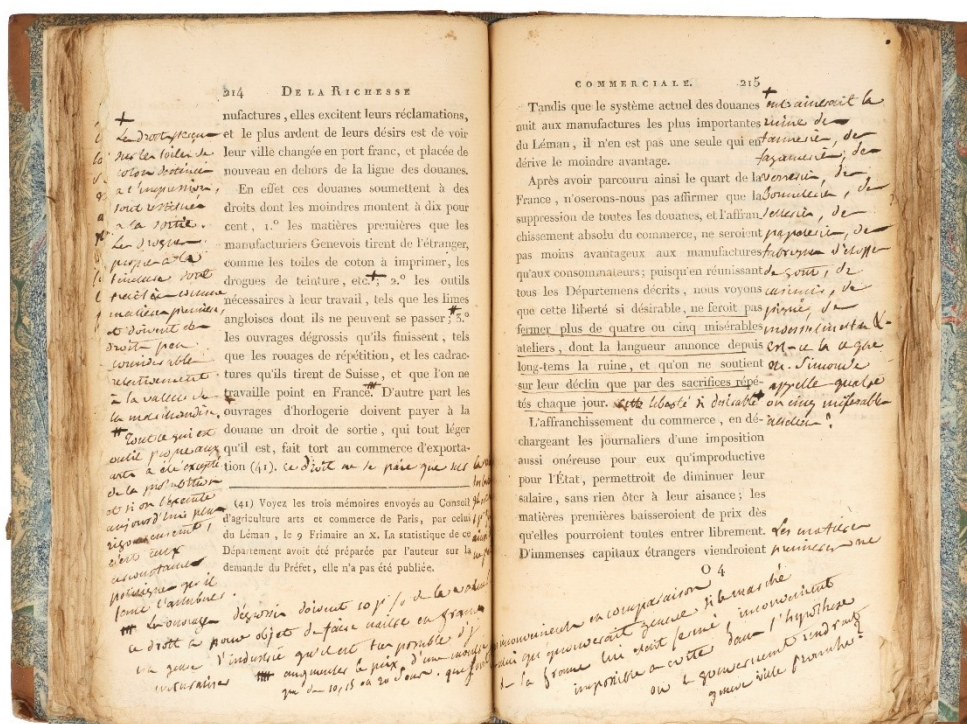 214 DE LA RICHESSE
nufactures, elles excitent leurs réclamations,
et le plus ardent de leurs désirs est de voir
leur ville changée en port franc, et placée de
nouveau en dehors de la ligne des douanes.
En effet ces douanes soumettent à des
droits dont les moindres montent à dix pour
cent, 1.º les matières premières que les
manufacturiers Genevois tirent de l'étranger,
comme les toiles de coton à imprimer, les
drogues de teinture, etc.; 2.º les outils
nécessaires à leur travail, tels que les limes
angloises dont ils ne peuvent se passer; 3.º
les ouvrages dégrossis qu'ils finissent, tels
que les rouages de répétition, et les cadrac-
tures qu'ils tirent de Suisse, et que l'on ne
travaille point en France. D'autre part les
ouvrages d'horlogerie doivent payer à la
douane un droit de sortie, qui tout léger
qu'il est, fait tort au commerce d'exporta-
tion (41). ce droit ne se paie que
(41) Voyez les trois mémoires envoyés au Conseil
d'agriculture arts et commerce de Paris, par celui
du Léman, le 9 Frimaire an X. La statistique de ce
Département avoit été préparée par l'auteur sur la
demande du Préfet, elle n'a pas été publiée.
+
Le droit perçu
sur les toiles de
coton destinées
à l'impression,
sont restitués
à la sortie.
Les drogues
propres à la
teinture sont
matières premières,
et doivent de
droit peu
considérable
relativement
à la valeur de
la marchandise.
Tout ce qui est
outil propre aux
arts a été excepté
de la prohibition
et si on l'exécute
aujourd'hui plus
rigoureusement,
c'est aux
circonstances
qu'il
faut l'attribuer.
Les ouvrages dégrossis doivent 10 p % de la
ce droit a pour objet de faire naitre en france
un genre d'industrie qu'il est
naturaliser
augmenter le prix d'une montre
que de 10, 15 ou 20 sous.
COMMERCIALE. 215
Tandis que le système actuel des douanes
nuit aux manufactures les plus importantes
du Léman, il n'en est pas une seule qui en
dérive le moindre avantage.
Après avoir parcouru ainsi le quart de la
France, n'oserons-nous pas affirmer que la
suppression de toutes les douanes, et l'affran-
chissement absolu du commerce, ne seroient
pas moins avantageux aux manufactures
qu'aux consommateurs; puisqu'en réunissant
tous les Départemens décrits, nous voyons
que cette liberté si désirable, ne feroit pas
fermer plus de quatre ou cinq misérables
ateliers, dont la langueur annonce depuis
long-tems la ruine, et qu'on ne soutient
sur leur déclin que par des sacrifices répé-
tés chaque jour. cette liberté si désirable +
L'affranchissement du commerce, en dé-
chargeant les journaliers d'une imposition
aussi onéreuse pour eux qu'improductive
pour l'État, permettroit de diminuer leur
salaire, sans rien ôter à leur aisance; les
matières premières baisseroient de prix dès
qu'elles pourroient toutes entrer librement.
D'immenses capitaux étrangers viendroient
O 4
+ entrainerait la
ruine de
tannerie, de
fayancerie, de
verrerie, de
bonneterie, de
sellerie, de
papeterie, de
fabriques d'étoffes
de
de
est-ce là ce que
M. Simonde
appelle quatre
ou cinq misérables
ateliers?
Les matières
premières ne
inconvénients en comparaison
qu'éprouverait genève si le marché
de la france lui était fermé, inconvénient
impossible à éviter dans l'hypothèse
où le gouvernement rendrait
genève ville franche?